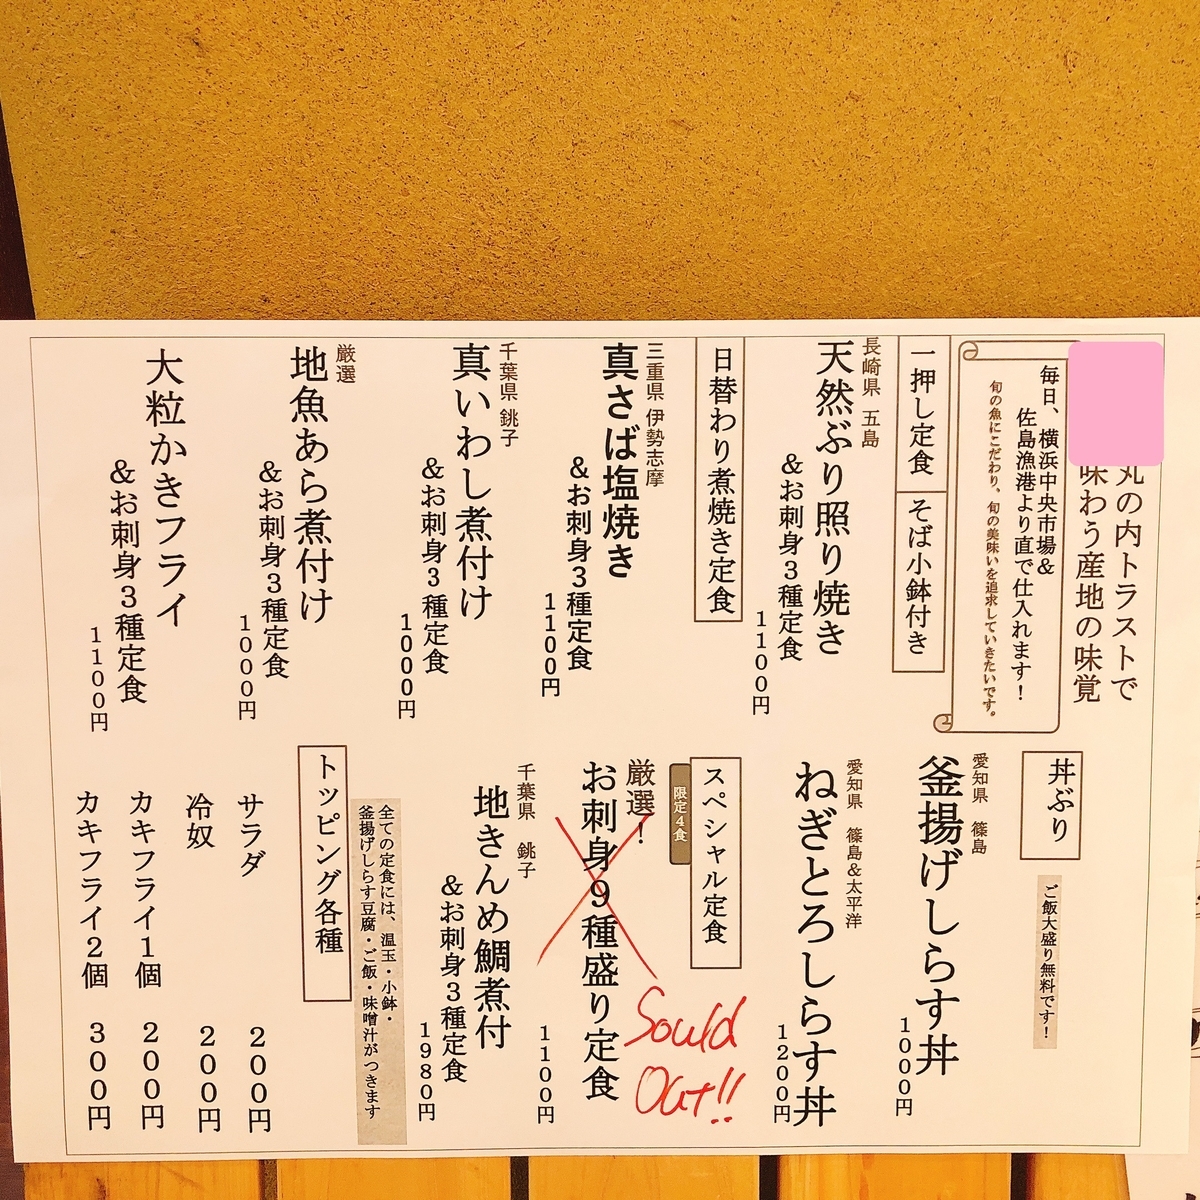 丸の内トラストで
味わう産地の味覚
毎日、横浜中央市場&
佐島漁港より直で仕入れます！
旬の魚にこだわり、旬の美味いを追求していきたいです。
一押し定食 そば小鉢付き
長崎県 五島
天然ぶり照り焼き
&お刺身3種定食
1100円
日替わり煮焼き定食
三重県 伊勢志摩
真さば塩焼き
&お刺身3種定食
1100円
千葉県 銚子
真いわし煮付け
&お刺身3種定食
1000円
厳選
地魚あら煮付け
&お刺身3種定食
1000円
大粒かきフライ
&お刺身3種定食
1100円
丼ぶり
ご飯大盛り無料です！
愛知県 篠島
釜揚げしらす丼
1000円
愛知県 篠島&太平洋
ねぎとろしらす丼
1200円
スペシャル定食
限定4食
厳選！
お刺身9種盛り定食
1100円
Sould
Out!!
千葉県 銚子
地きんめ鯛煮付
&お刺身3種定食
1980円
全ての定食には、温玉・小鉢・
釜揚げしらす豆腐・ご飯・味噌汁がつきます
トッピング各種
サラダ 200円
冷奴 200円
カキフライ1個 200円
カキフライ2個 300円